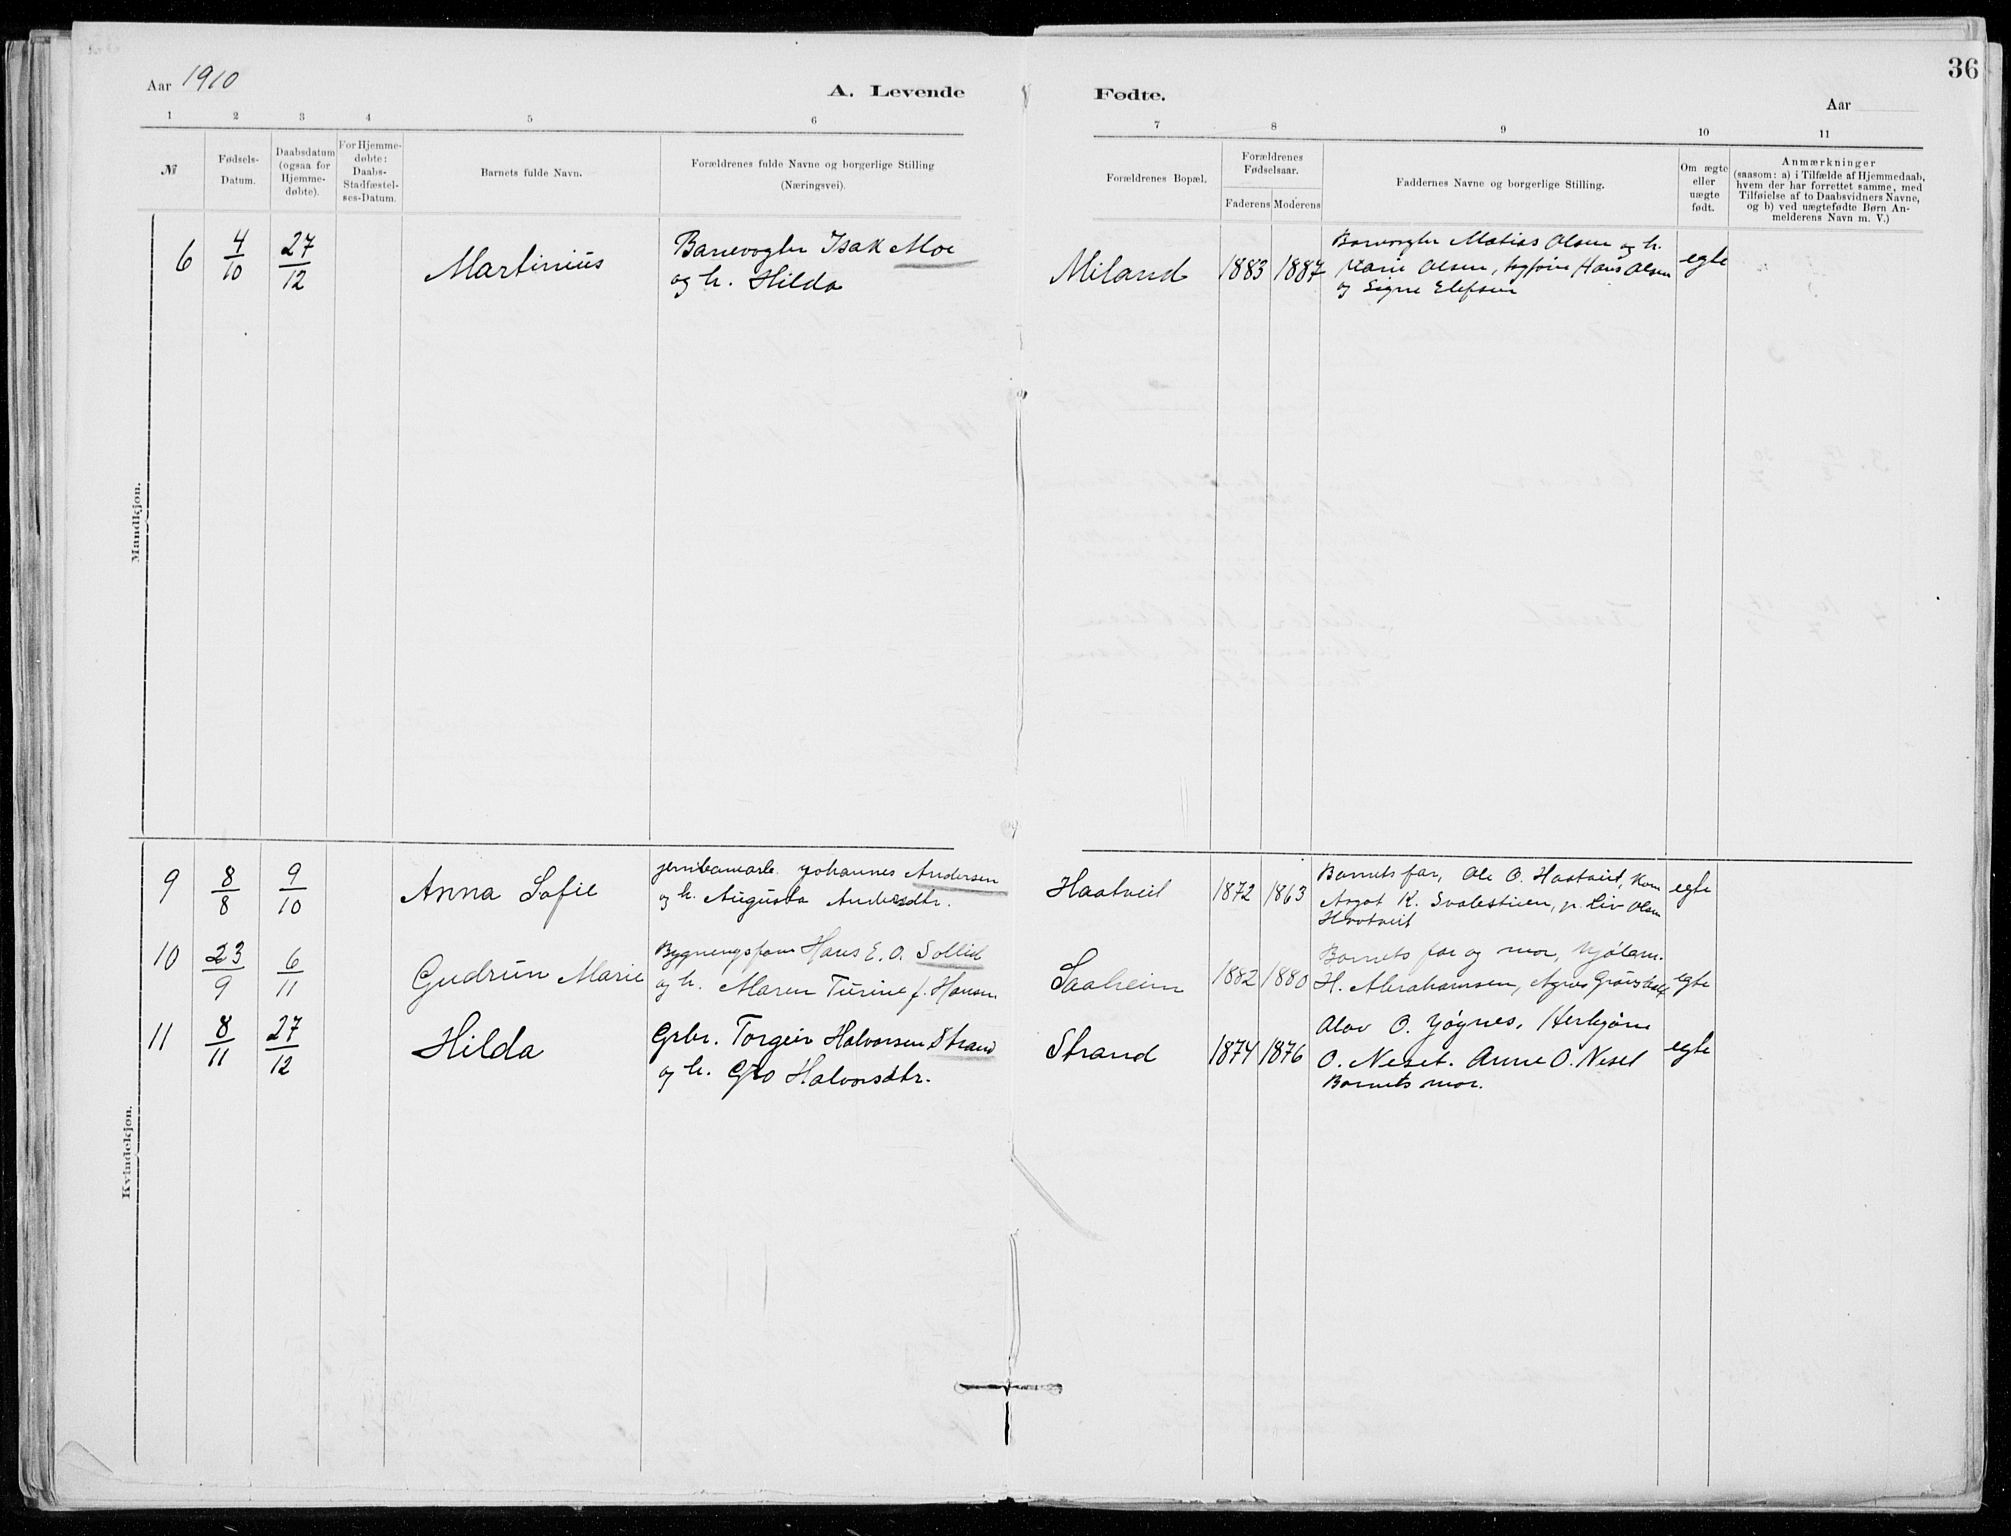 Aar 1910
A. Levende Fødte.
Aar
36
1 2 3 4 5 6 7 8 9 10 11
№
Fødsels-
Datum.
Daabsdatum
(ogsaa for
Hjemme-
døbte).
For Hjemme-
døbte:
Daabs-
Stadfæstel-
ses-Datum.
Barnets fulde Navn.
Forældrenes fulde Navne og borgerlige Stilling
(Næringsvei).
Forældrenes Bopæl.
Forældrenes
Fødselsaar.
Faderens Moderens
Faddernes Navne og borgerlige Stilling.
Om ægte
eller
uægte
født.
Anmærkninger
(saasom: a) i Tilfælde af Hjemmedaab,
hvem der har forrettet samme, med
Tilføielse af to Daabsvidners Navne,
og b) ved uægtefødte Børn An-
melderens Navn m. V.)
Mandkjøn.
6 4/10 27/12
Martinius
Banevogter Isak Moe
og h. Hilda
Miland
1883 1887
Banevogter Matias Olsen og h.
Karie Olsen, Hans Olsen
og Signe Elefsen
egte
Kvindekjøn.
9 8/8 9/10
Anna Sofie
jernbanearb. Johannes Andersen
og h. Augusta Andersdtr.
Haatveit
1872 1863
Barnets far, Ole O. Haatveit, Kone
Aagot K. Svalestuen, p. Liv Olsen
Haatveit
egte
10 23/9 6/11
Gudrun Marie
Bygningsform Hans E. O. Sollid
og h. Maren Turine f. Hansen
Saaheim
1882 1880
Barnets far og mor,
H. Abrahamsen, Agnes
egte
11 8/11 27/12
Hilda
Grbr. Torgeir Halvorsen Strand
og h. Gro Halvorsdtr.
Strand
1874 1876
Olav O. Høgnes, Herbjørn
O. Neset. Anne O. Neset
Barnets mor.
egte